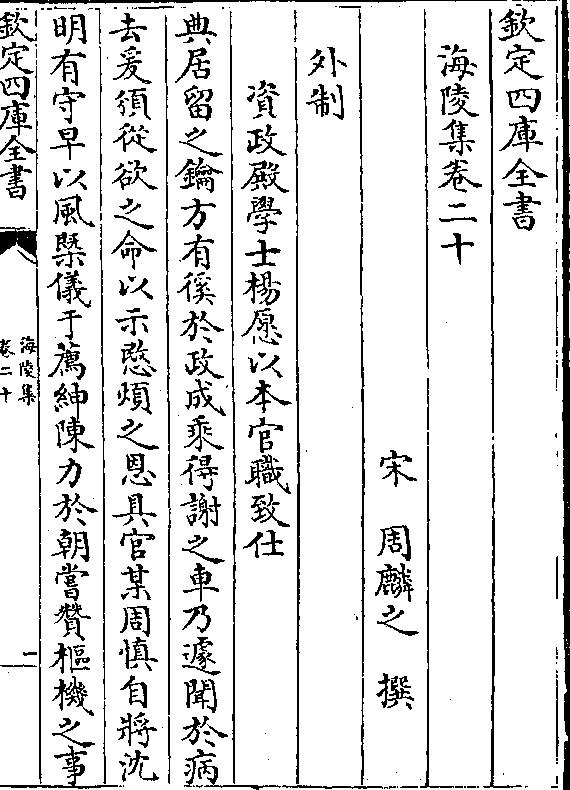 欽定四庫全書
海陵集卷二十
宋 周麟之 撰
外制
資政殿學士楊愿以本官職致仕
典居留之鑰方有徯於政成乘得謝之車乃遽聞於病
去爰須從欲之命以示愍煩之恩具官某周慎自將沈
明有守早以風槩儀于薦紳陳力於朝嘗贊樞機之事
欽定四庫全書
海陵集
卷二十
一